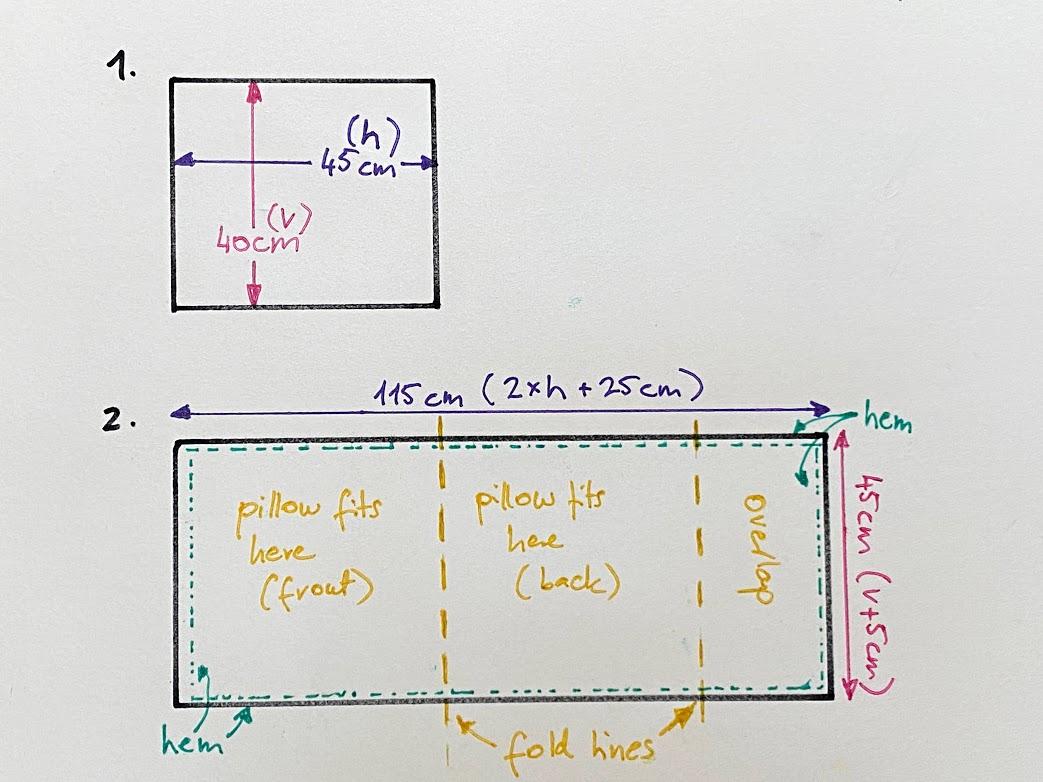 1.
(h)
45cm
(v)
40cm
115cm (2×h + 25cm)
2.
hem
pillow fits
here
(front)
pillow fits
here
(back)
overlap
45cm (v+5cm)
hem
fold lines